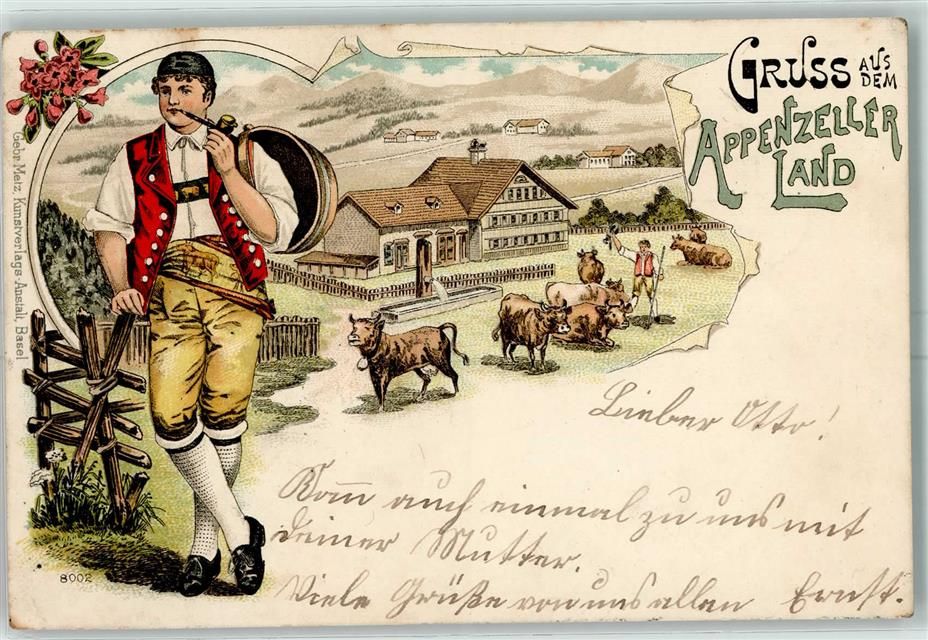 GRUSS AUS DEM
APPENZELLER
LAND
Gebr. Metz, Kunstverlags-Anstalt, Basel
Lieber Otto!
Komm auch einmal zu uns mit
deiner Mutter.
Viele Grüße von uns allen Ernst.
8002